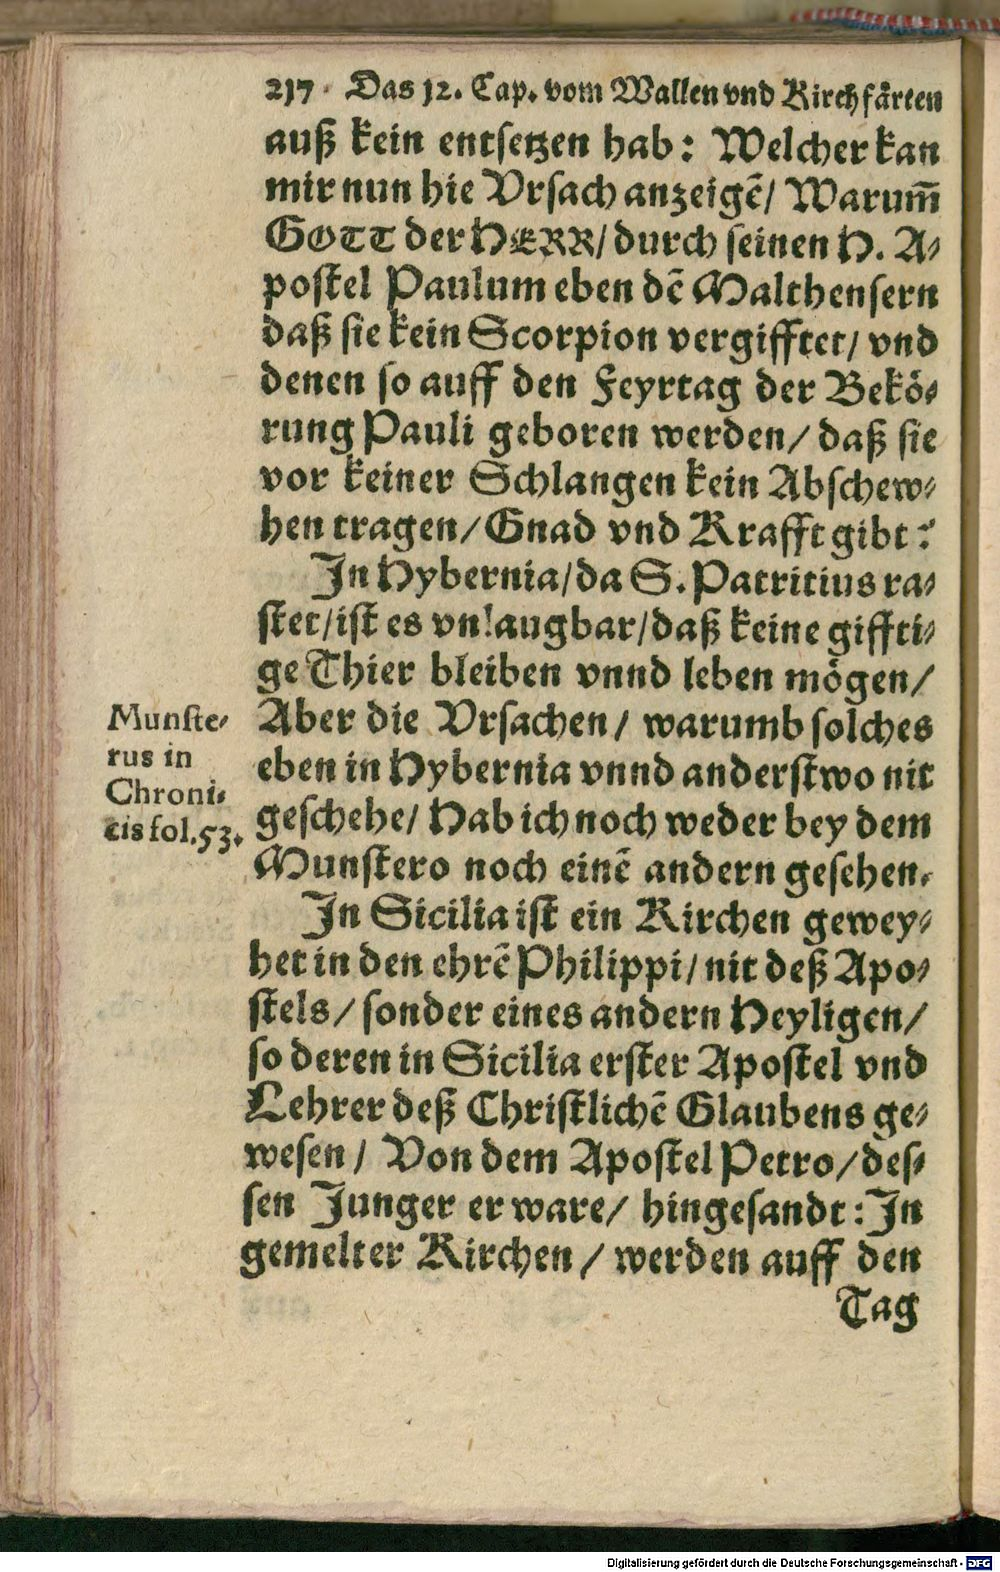 217. Das 12. Cap. vom Wallen vnd Kirchfärten
auß kein entsetzen hab: Welcher kan
mir nun hie Vrsach anzeigẽ/ Warum̃
GOTT der HERR/ durch seinen H. A-
postel Paulum eben dẽ Malthensern
daß sie kein Scorpion vergifftet/ vnd
denen so auff den Feyrtag der Bekö-
rung Pauli geboren werden/ daß sie
vor keiner Schlangen kein Abschew-
hen tragen/ Gnad vnd Krafft gibt?
In Hybernia/ da S. Patritius ra-
stet/ ist es vnlaugbar/ daß keine giffti-
ge Thier bleiben vnnd leben mögen/
Aber die Vrsachen/ warumb solches
eben in Hybernia vnnd anderstwo nit
geschehe/ Hab ich noch weder bey dem
Munstero noch einẽ andern gesehen.
Munste-
rus in
Chroni-
cis fol. 53.
In Sicilia ist ein Kirchen gewey-
het in den ehrẽ Philippi/ nit deß Apo-
stels/ sonder eines andern Heyligen/
so deren in Sicilia erster Apostel vnd
Lehrer deß Christlichẽ Glaubens ge-
wesen/ Von dem Apostel Petro/ des-
sen Junger er ware/ hingesandt: In
gemelter Kirchen/ werden auff den
Tag
Digitalisierung gefördert durch die Deutsche Forschungsgemeinschaft - DFG